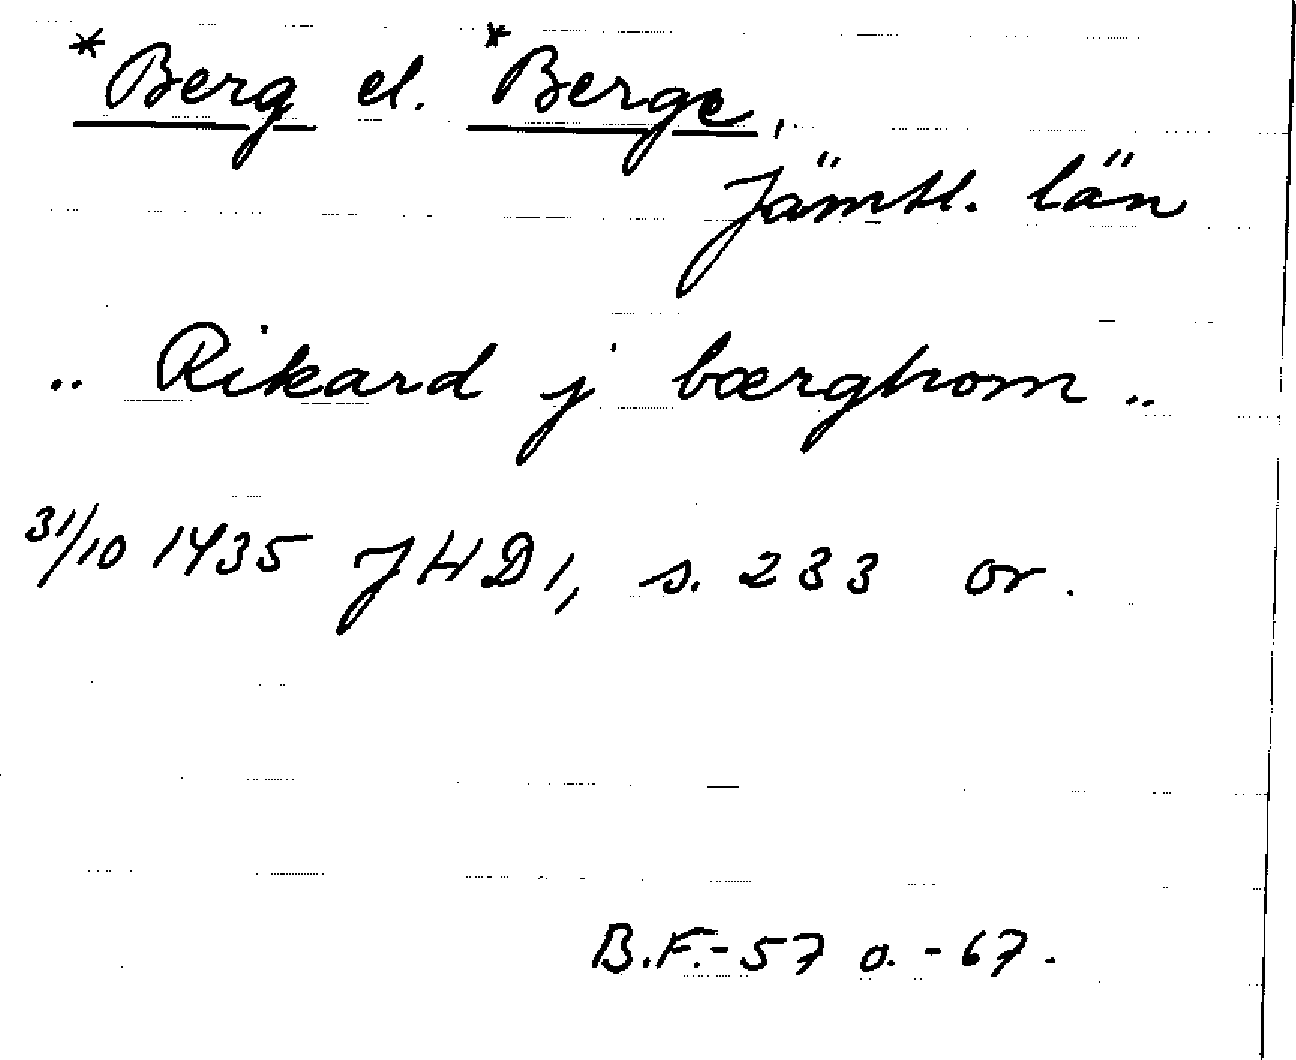 *Berg el. *Berge,
Jämtl. län
.. Rikard j bærghom ..
31/10 1435 JHD 1, s. 233 or.
B.F.-57 o. -67.